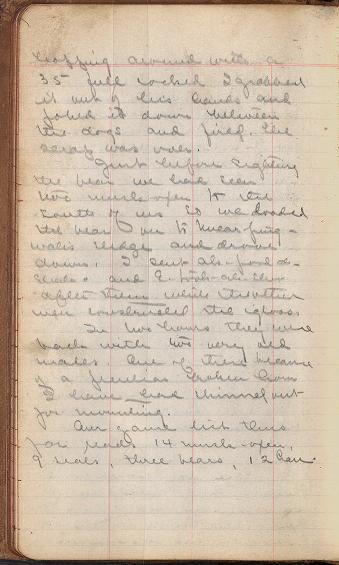 hopping around with a
35 full cocked I grabbed
it out of his hands and
poked it down between
the dogs and fired. The
scrap was over.
Just before sighting
the bear we had seen
two musk-oxen to the
south of us so we loaded
the bear on to
sledge and drove
down. I sent
and
after them while the other
men constructed the igloos.
In two hours they were
back with two very old
males. One of them because
of a peculiar broken horn
I have had skinned out
for mounting.
Our game list thus
far reads 14 musk-oxen,
9 seals, three bears, 12